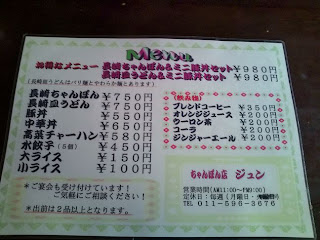 Menu
お得なメニュー 長崎ちゃんぽん&ミニ豚丼セット ¥980円
長崎皿うどん&ミニ豚丼セット ¥980円
(長崎皿うどんはパリ麺とやわらか麺とあります)
長崎ちゃんぽん ¥750円
長崎皿うどん ¥750円
豚丼 ¥550円
中華丼 ¥650円
高菜チャーハン ¥580円
水餃子(5個) ¥450円
大ライス ¥150円
小ライス ¥100円
(飲み物)
ブレンドコーヒー ¥350円
オレンジジュース ¥200円
ウーロン茶 ¥200円
コーラ ¥200円
ジンジャーエール ¥200円
*ご宴会も受け付けています!
ご気軽にご相談ください!
*出前は2品以上となります。
ちゃんぽん店 ジュン
営業時間(AM11:00~PM9:00)
定休日:毎週(月曜日・
TEL 011-596-3676